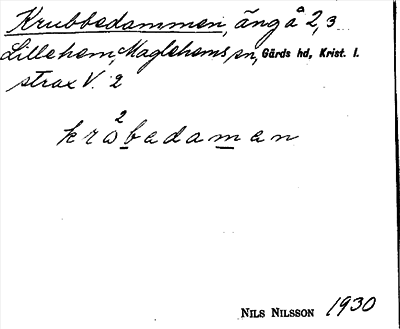 Krubbedammen, äng å 2,3
Lillehem, Maglehems sn, Gärds hd, Krist. l.
strax V. 2
2
krωbedamen
NILS NILSSON 1930